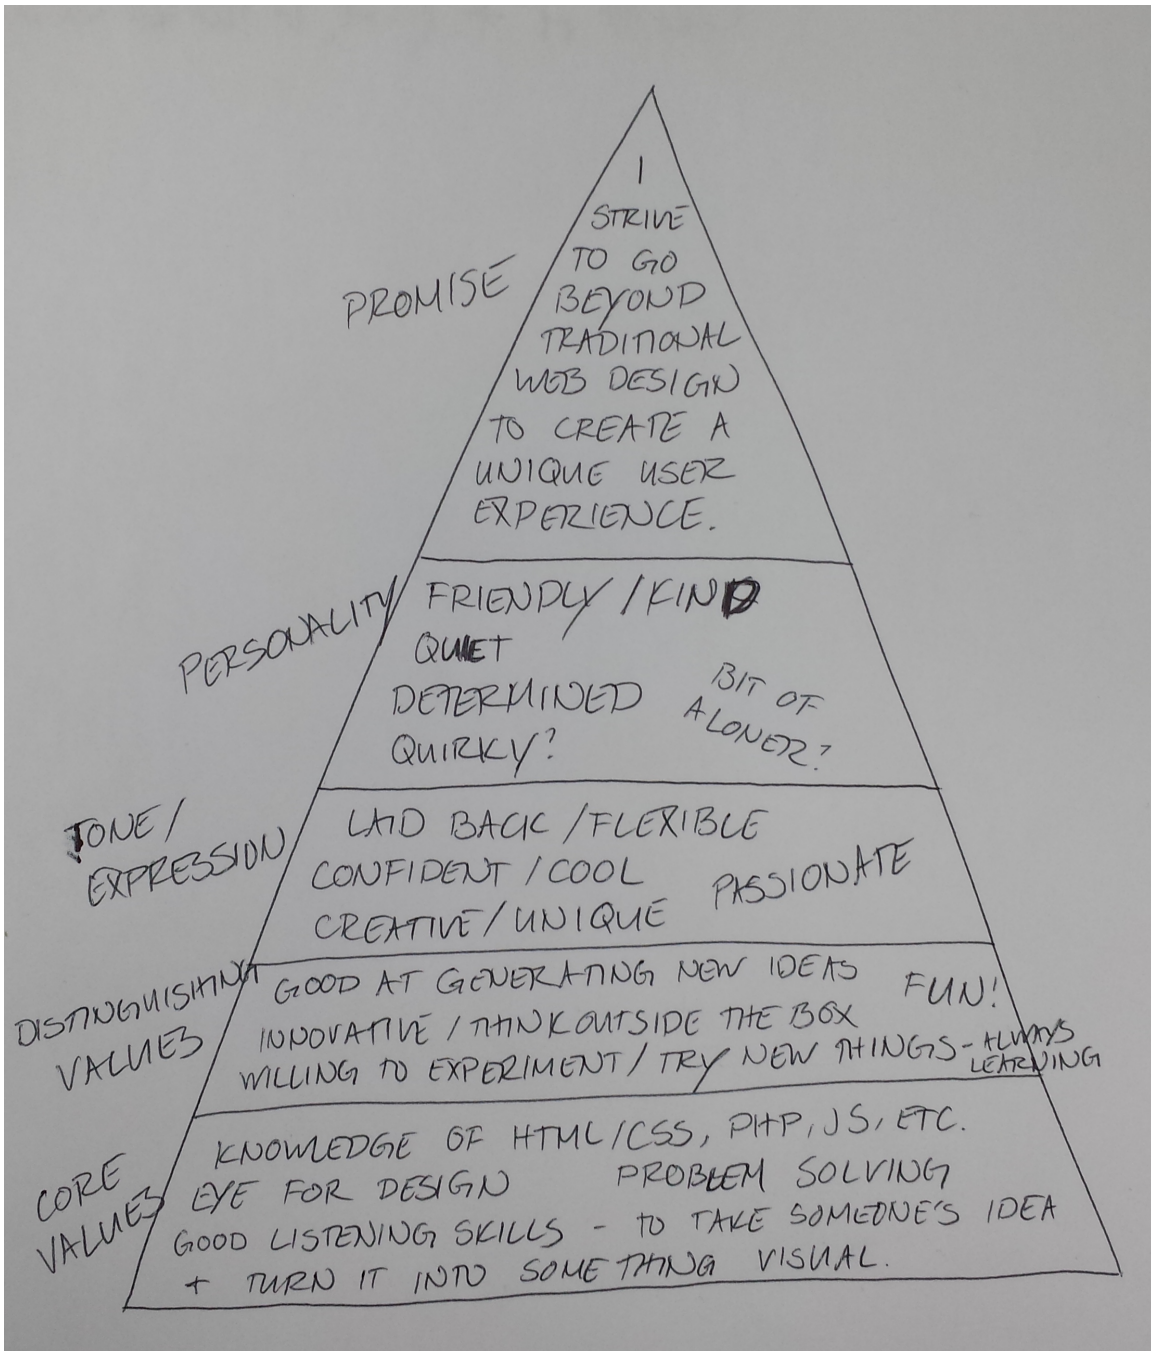 I
STRIVE
TO GO
BEYOND
TRADITIONAL
WEB DESIGN
TO CREATE A
UNIQUE USER
EXPERIENCE.
PROMISE
PERSONALITY
FRIENDLY / KIND
QUIET
DETERMINED
QUIRKY?
BIT OF
A LONER?
TONE/
EXPRESSION
LAID BACK / FLEXIBLE
CONFIDENT / COOL
CREATIVE / UNIQUE
PASSIONATE
DISTINGUISHING
VALUES
GOOD AT GENERATING NEW IDEAS
FUN!
INNOVATIVE / THINK OUTSIDE THE BOX
WILLING TO EXPERIMENT / TRY NEW THINGS - ALWAYS
LEARNING
CORE
VALUES
KNOWLEDGE OF HTML/CSS, PHP, JS, ETC.
EYE FOR DESIGN PROBLEM SOLVING
GOOD LISTENING SKILLS - TO TAKE SOMEONE'S IDEA
+ TURN IT INTO SOMETHING VISUAL.